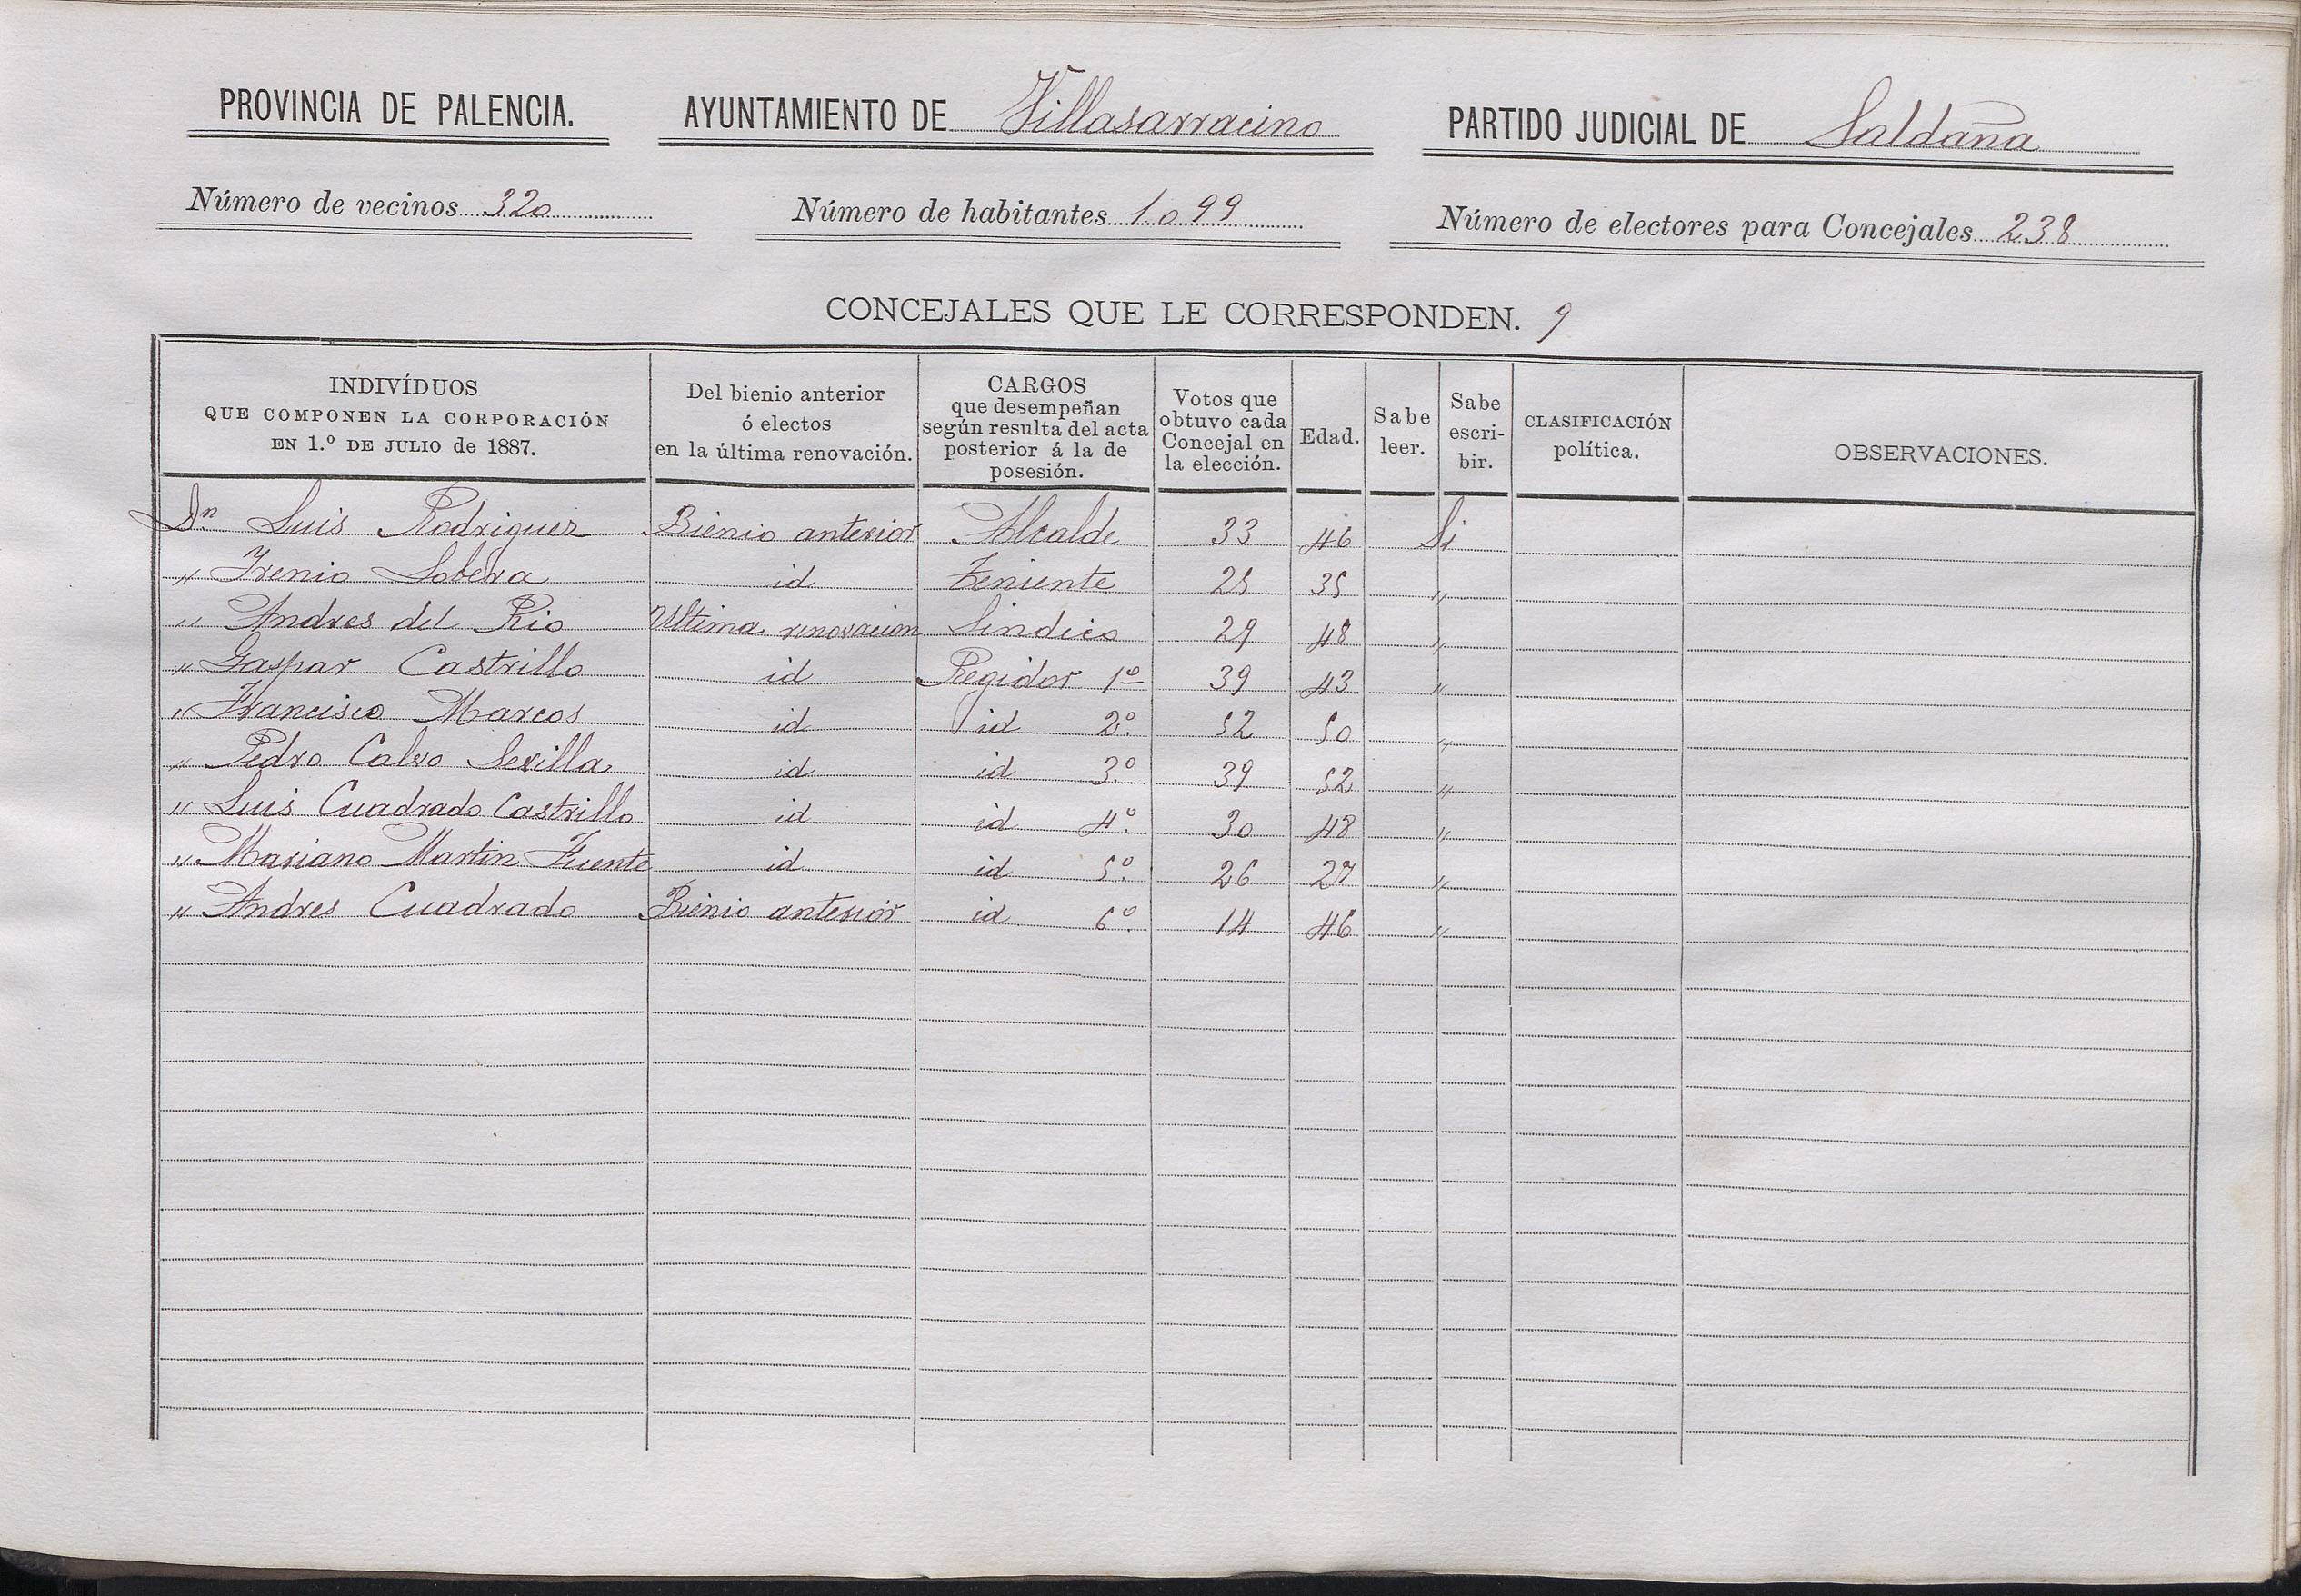 PROVINCIA DE PALENCIA. AYUNTAMIENTO DE Villasarracino PARTIDO JUDICIAL DE Saldaña
Número de vecinos 320 Número de habitantes 1.099 Número de electores para Concejales 238
CONCEJALES QUE LE CORRESPONDEN. 9
INDIVÍDUOS QUE COMPONEN LA CORPORACIÓN EN 1.º DE JULIO de 1887.
Del bienio anterior ó electos en la última renovación.
CARGOS que desempeñan según resulta del acta posterior á la de posesión.
Votos que obtuvo cada Concejal en la elección.
Edad.
Sabe leer.
Sabe escri-bir.
CLASIFICACIÓN política.
OBSERVACIONES.
Dn Luis Rodriguez Bienio anterior Alcalde 33 46 Si
" Irenio Lobera id Teniente 25 35 "
" Andres del Rio Ultima renovacion Sindico 29 48 "
" Gaspar Castrillo id Regidor 1º 39 43 "
" Francisco Marcos id id 2º. 52 50 "
" Pedro Calvo Sevilla id id 3.º 39 52 "
" Luis Cuadrado Castrillo id id 4º. 30 48 "
" Mariano Martin Fuente id id 5º. 26 27 "
" Andres Cuadrado Bienio anterior id 6º. 14 46 "